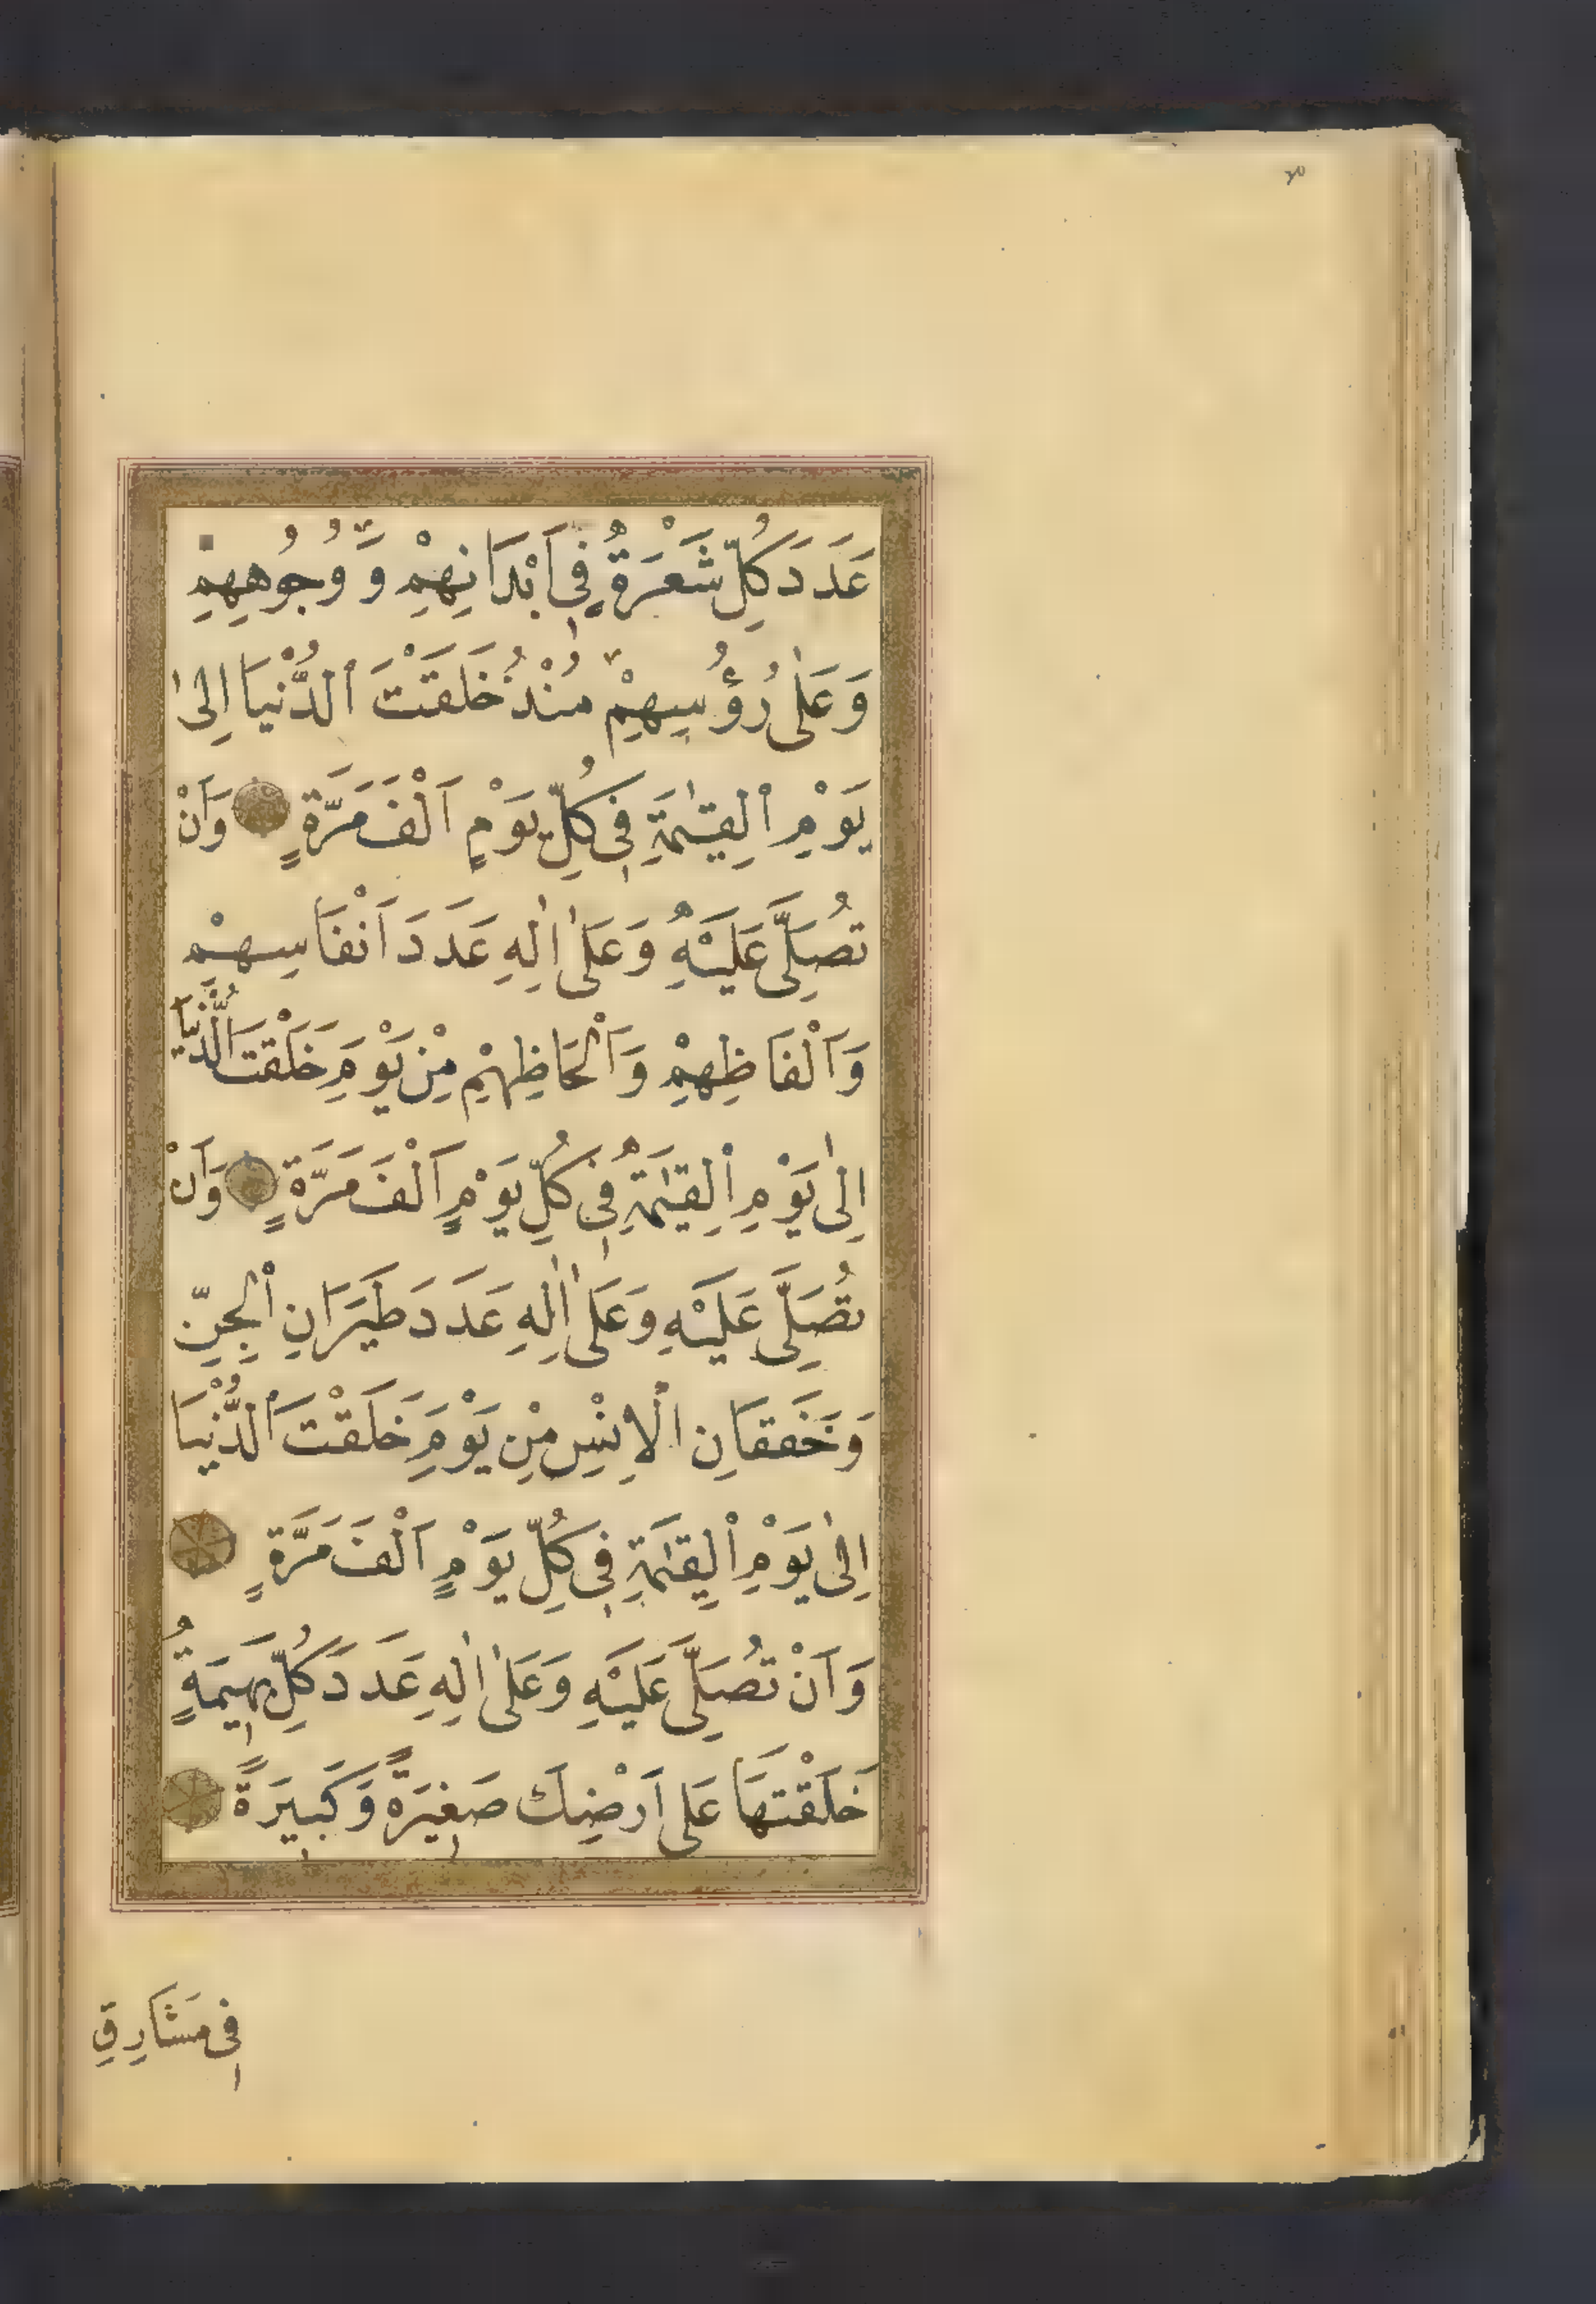 عَدَدَ كُلِّ شَعْرَةٍ فِى اَبْدَانِهِمْ وَّ وُجُوهِهِمْ
وَعَلٰى رُؤُسِهِمْ مُنْذُ خَلَقْتَ الدُّنْيَا اِلٰى
يَوْمِ الْقِيٰمَةِ فِى كُلِّ يَوْمٍ اَلْفَ مَرَّةٍ وَاَنْ
تُصَلِّىَ عَلَيْهِ وَعَلٰى اٰلِهِ عَدَدَ اَنْفَاسِهِمْ
وَاَلْفَاظِهِمْ وَاَلْحَاظِهِمْ مِنْ يَوْمِ خَلَقْتَ الدُّنْيَا
اِلٰى يَوْمِ الْقِيٰمَةِ فِى كُلِّ يَوْمٍ اَلْفَ مَرَّةٍ وَاَنْ
تُصَلِّىَ عَلَيْهِ وَعَلٰى اٰلِهِ عَدَدَ طَيَرَانِ الْجِنِّ
وَخَفَقَانِ الْاِنْسِ مِنْ يَوْمِ خَلَقْتَ الدُّنْيَا
اِلٰى يَوْمِ الْقِيٰمَةِ فِى كُلِّ يَوْمٍ اَلْفَ مَرَّةٍ
وَاَنْ تُصَلِّىَ عَلَيْهِ وَعَلٰى اٰلِهِ عَدَدَ كُلِّ بَهِيمَةٍ
خَلَقْتَهَا عَلٰى اَرْضِكَ صَغِيرَةً وَّكَبِيرَةً
فِى مَشَارِقِ